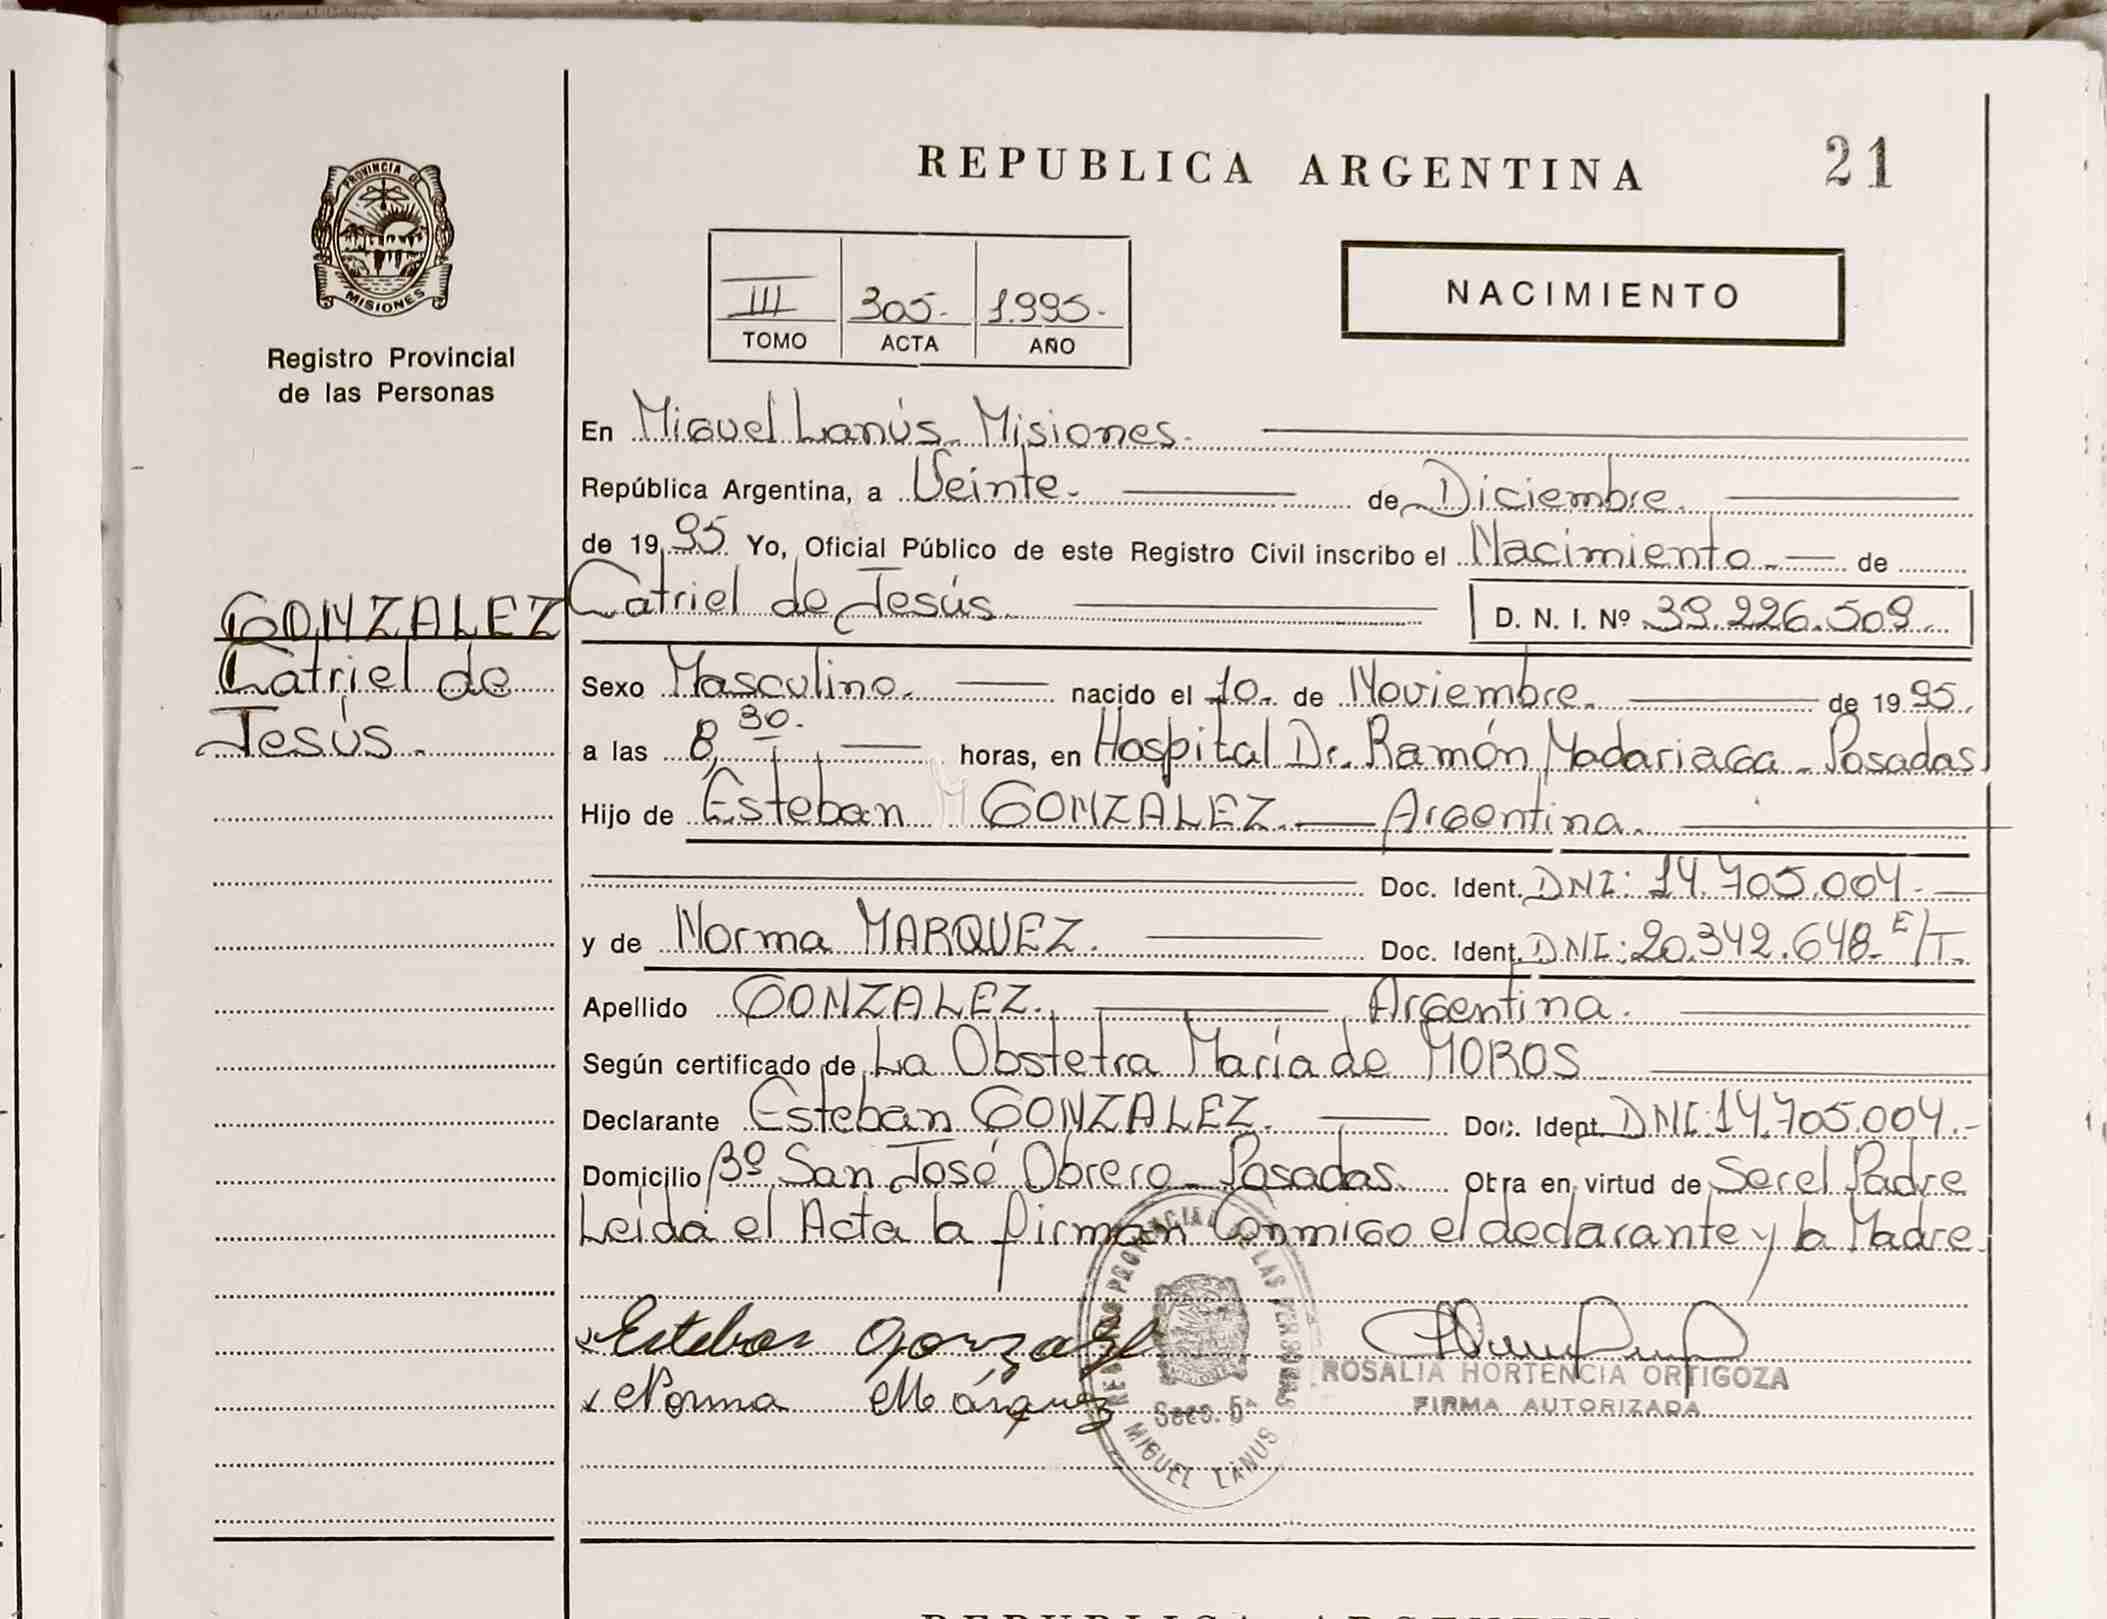 REPUBLICA ARGENTINA
21
PROVINCIA DE
MISIONES
Registro Provincial
de las Personas
III 305.- 1.995.-
TOMO ACTA AÑO
NACIMIENTO
En Miguel Lanús - Misiones.
República Argentina, a Veinte.- de Diciembre.
de 19 95 Yo, Oficial Público de este Registro Civil inscribo el Nacimiento.- de
GONZALEZ
Catriel de
Jesús.
Catriel de Jesús.
D. N. I. Nº 39.226.509
Sexo Masculino. nacido el 10. de Noviembre. de 19 95.
a las 8,30. horas, en Hospital Dr. Ramón Madariaga - Posadas
Hijo de Esteban GONZALEZ.- Argentina.
Doc. Ident. DNI: 14.705.004.-
y de Norma MARQUEZ. Doc. Ident. DNI: 20.342.648- E/T.
Apellido GONZALEZ. Argentina.
Según certificado de La Obstetra María de MOROS
Declarante Esteban GONZALEZ. Doc. Ident. DNI: 14.705.004.-
Domicilio Bº San José Obrero - Posadas. Obra en virtud de Ser el Padre
Leída el Acta la firman Conmigo el declarante y la Madre.
Esteban Gonzalez
Norma Márquez
REGISTRO PROVINCIAL DE LAS PERSONAS
Secc. 5ª
MIGUEL LANUS
ROSALIA HORTENCIA ORTIGOZA
FIRMA AUTORIZADA